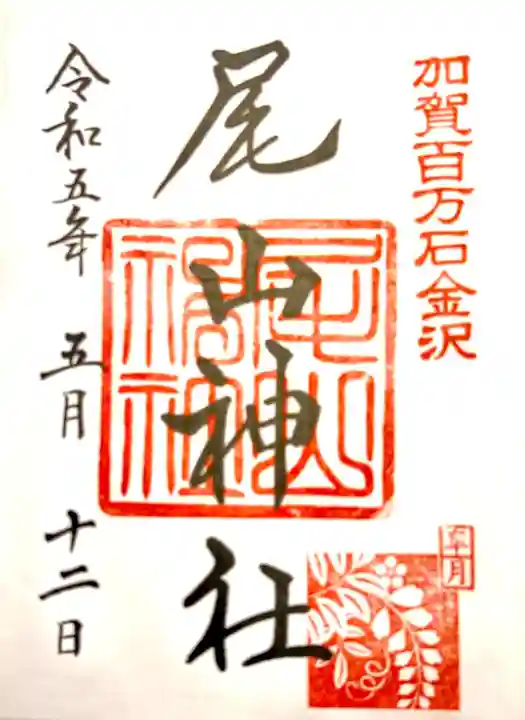 加賀百万石金沢
尾山神社
尾山神社
令和五年 五月 十二日